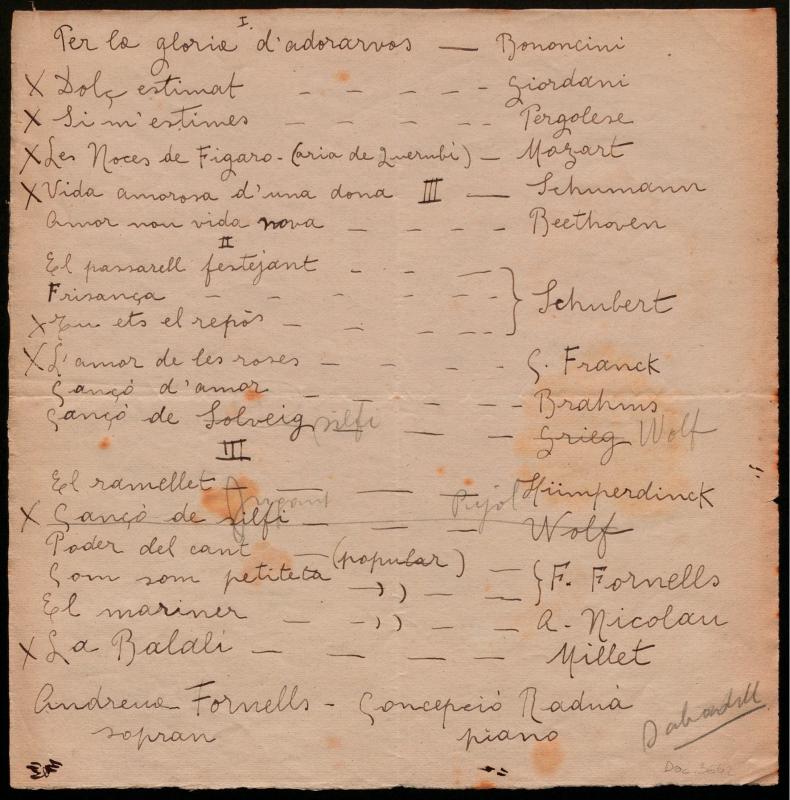 I.
Per la gloria d'adorarvos — Bononcini
X Dolç estimat - - - - - Giordani
X Si m'estimes - - - - - Pergolese
X Les Noces de Figaro - (aria de Querubí) - Mozart
X Vida amorosa d'una dona III — Schumann
Amor nou vida nova - - - - Beethoven
II
El passarell festejant - - - —
Frisança - - - - - - -
} Schubert
X Tu ets el repòs - - - - -
X L'amor de les roses - - - - C. Franck
Cançó d'amor - - - - - - Brahms
Cançó de Solveig silfi - - - Grieg Wolf
III
El ramellet - — — Humperdinck
Jugant Pujol
X Cançó de silfi - - - Wolf
Poder del cant - (popular) -
Com som petiteta - )) - - } F. Fornells
El mariner - - )) - - A. Nicolau
X La Balalí - - - - - Millet
Andreua Fornells - Concepció Raduà
sopran piano
Sabadell
Doc. 3662